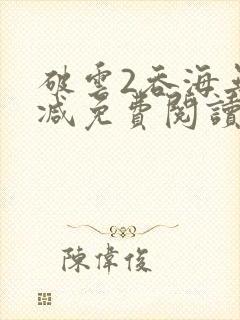 破雲2吞海無
減免費閱讀
陳偉俊